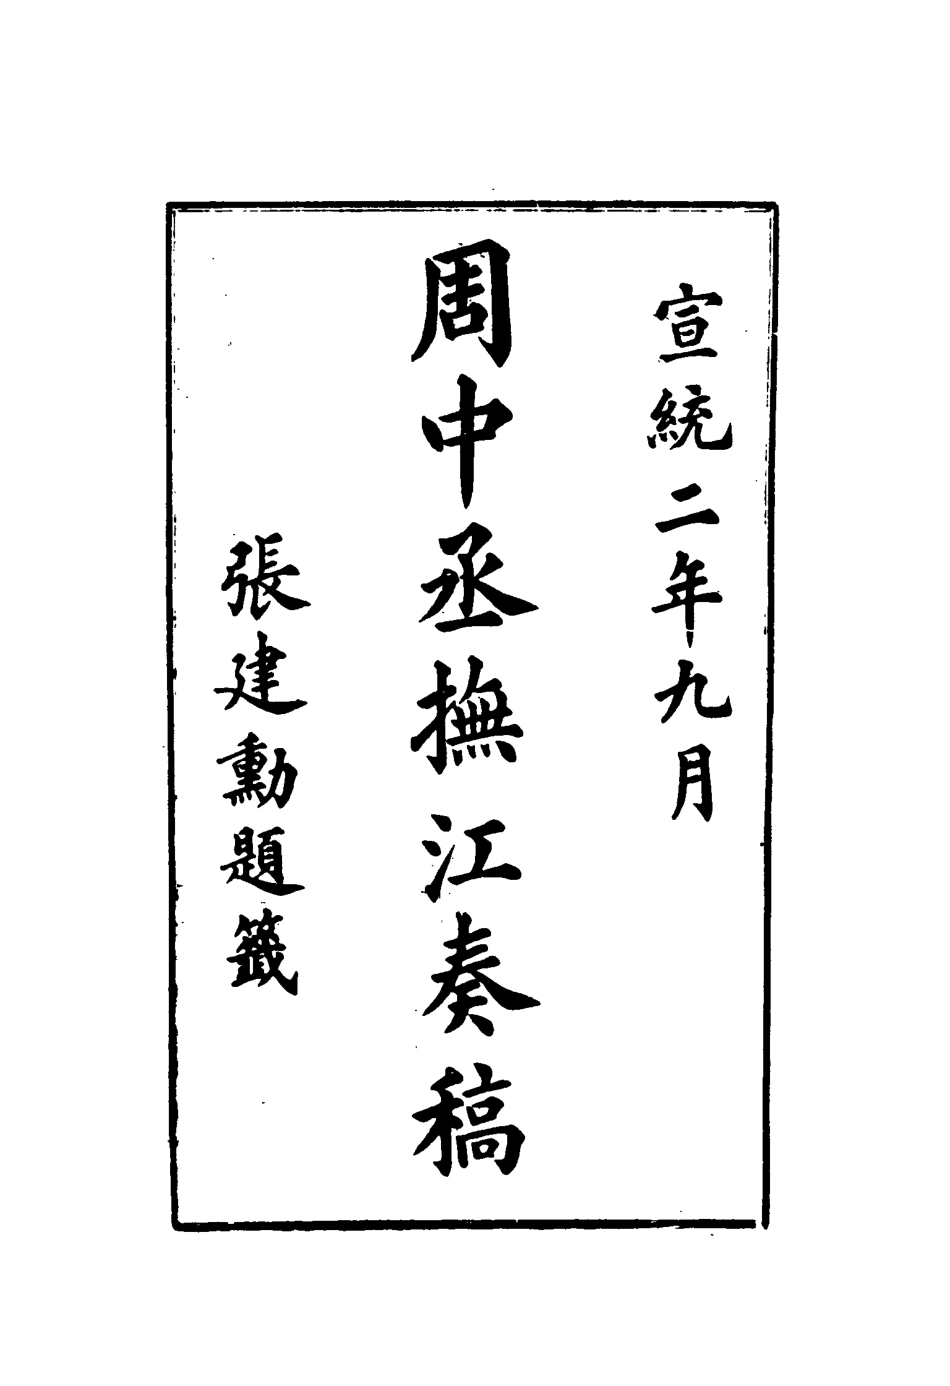 宣統二年九月
周中丞撫江奏稿
張建勳題籤